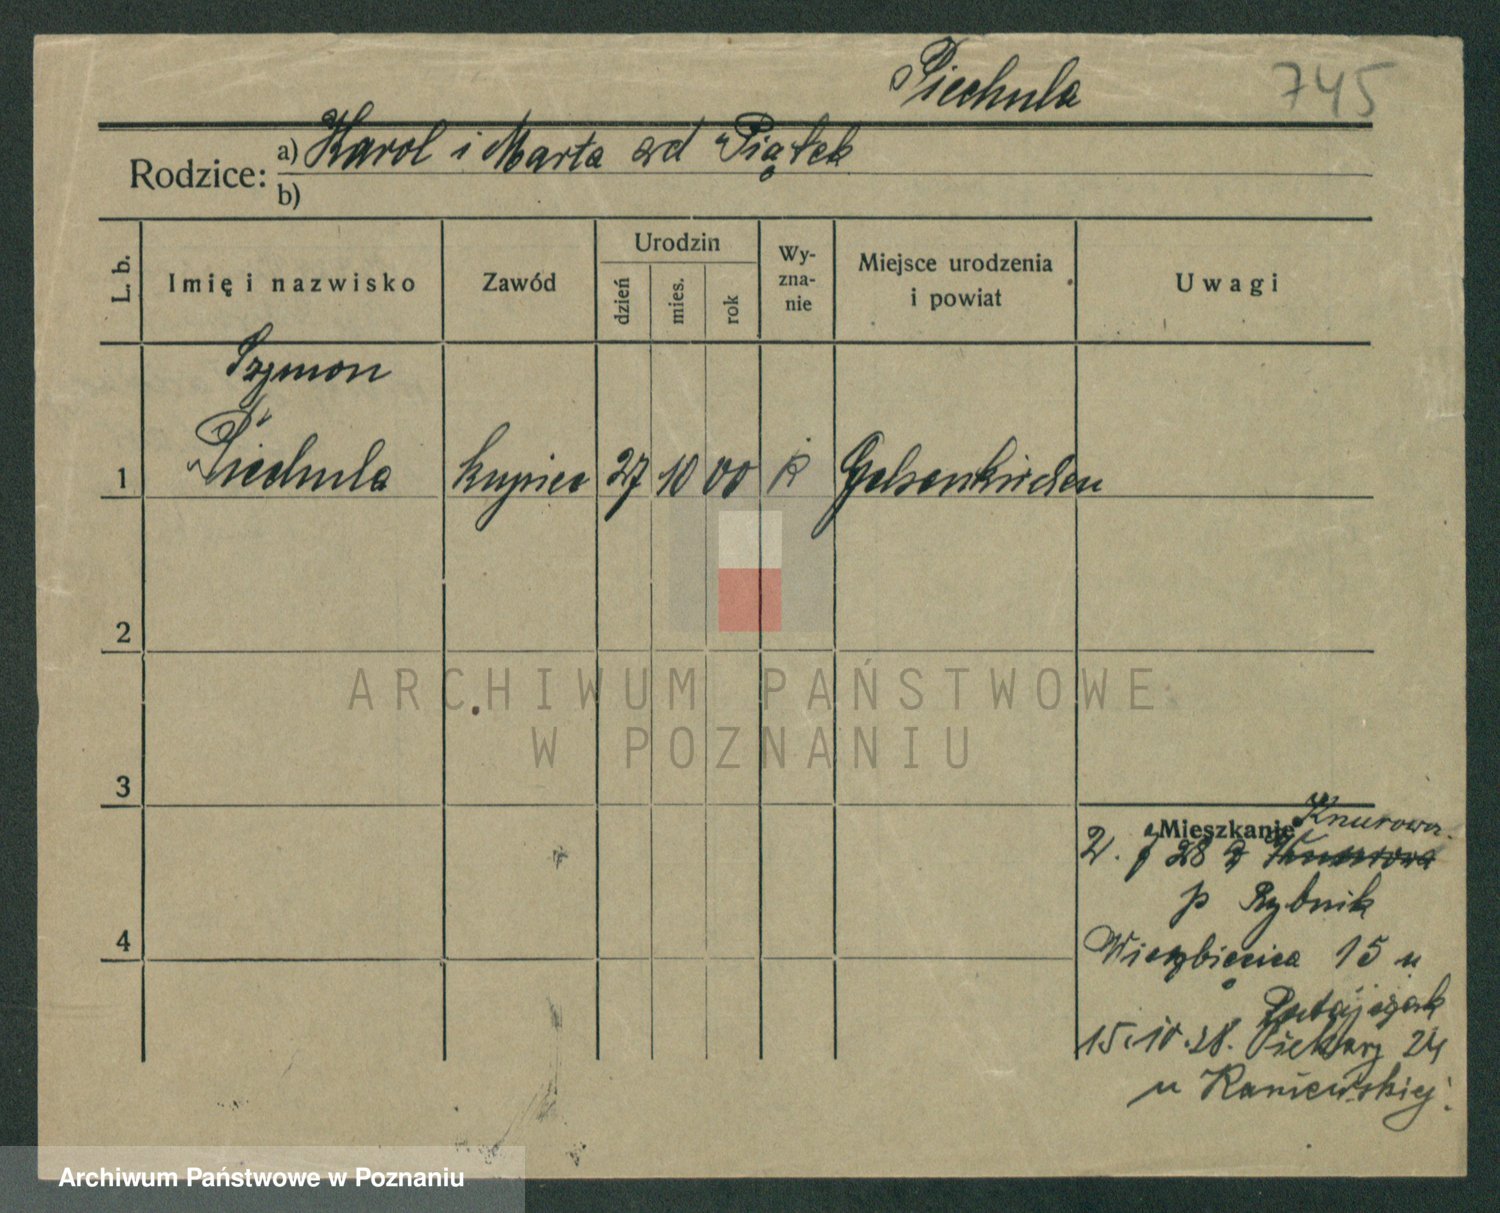 Piechula 745
Rodzice: a) Karol i Marta zd Piątek
b)
L. b. Imię i nazwisko Zawód Urodzin dzień mies. rok Wyznanie Miejsce urodzenia i powiat Uwagi
Szymon
1 Piechula kupiec 27 10 00 k Gelsenkirchen
2
ARCHIWUM PAŃSTWOWE
W POZNANIU
3
Mieszkanie Knurowa
2. 28 z
p Rybnik
4
Wierzbięcica 15 u
15.10.28. Piekary 24
u Kaniewskiej.
Archiwum Państwowe w Poznaniu